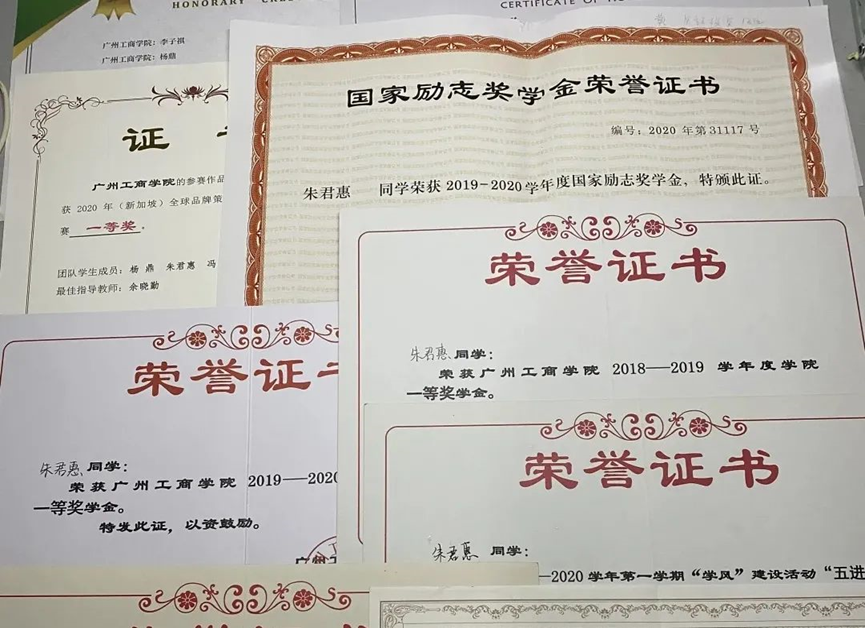 HONORARY
CERTIFICATE OF
广州工商学院：李子祺
广州工商学院：杨鼎
国家励志奖学金荣誉证书
编号：2020 年第31117 号
朱君惠 同学荣获 2019-2020学年度国家励志奖学金，特颁此证。
证
广州工商学院的参赛作品
获 2020 年（新加坡）全球品牌策
赛 一等奖 。
团队学生成员：杨 鼎 朱君惠 冯
最佳指导教师：余晓勤
荣誉证书
朱君惠 同学：
荣获广州工商学院 2018—2019 学年度学院
一等奖学金。
荣誉证
朱君惠 同学：
荣获广州工商学院 2019—2020
一等奖学金。
特发此证，以资鼓励。
荣誉证书
朱君惠 同学：
—2020 学年第一学期“学风”建设活动“五进